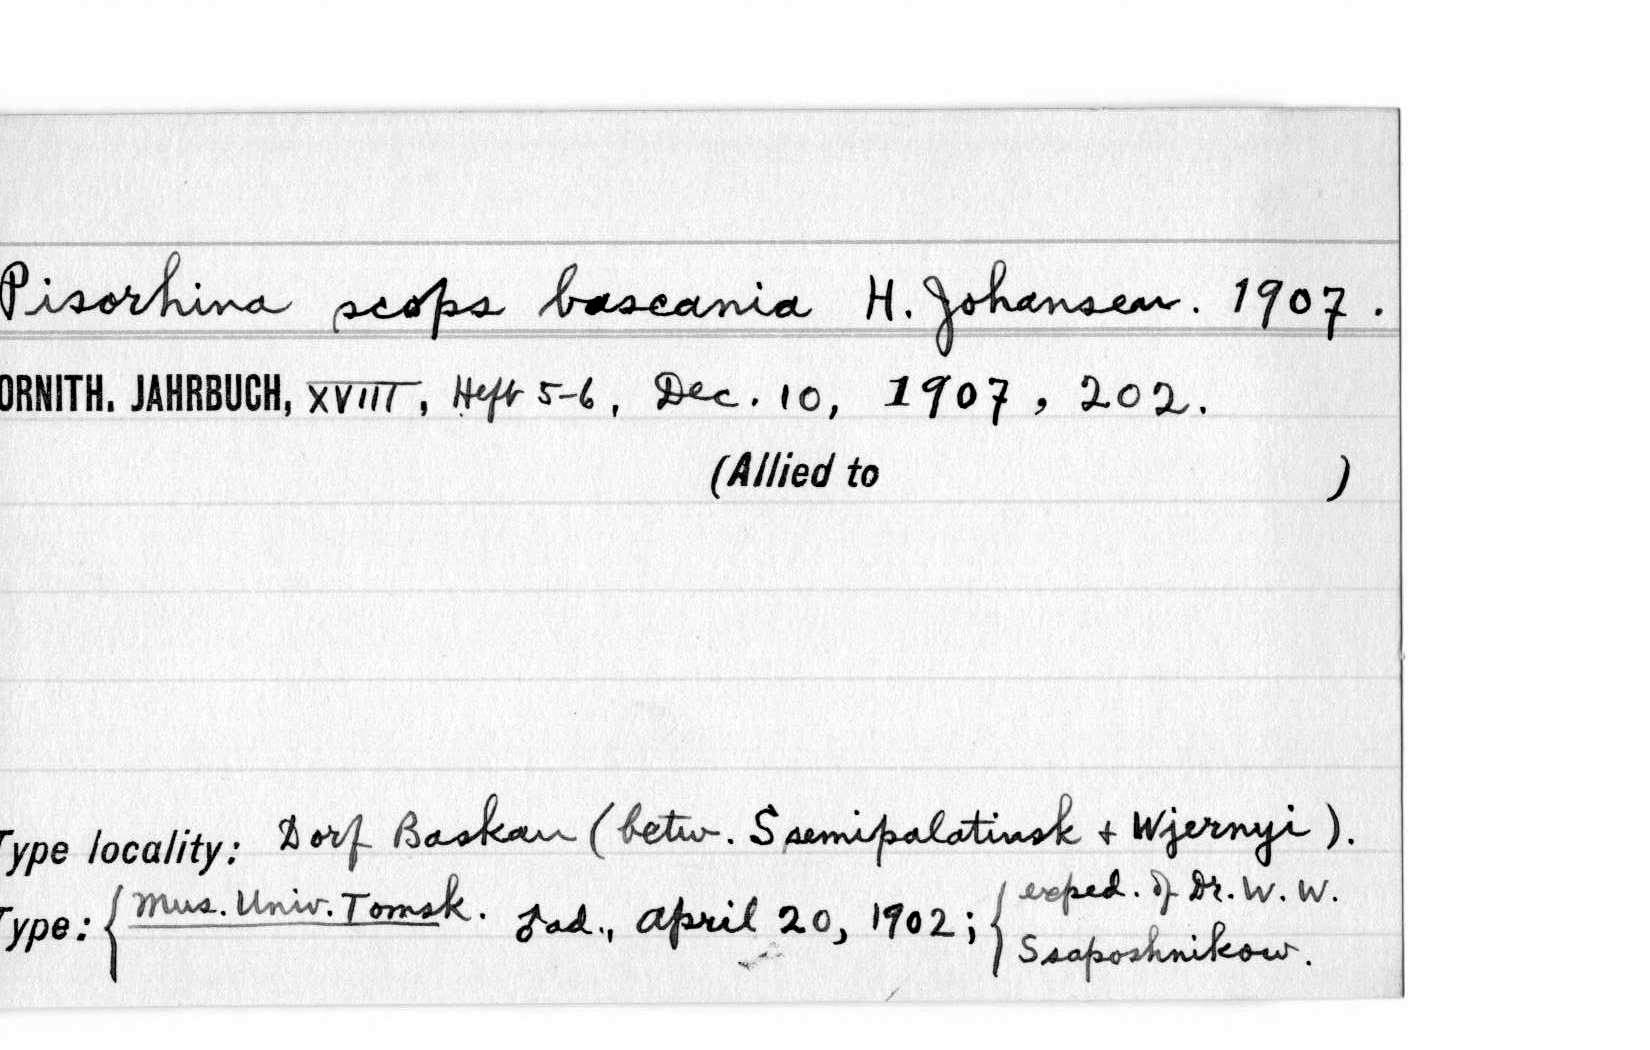 Pisorhina scops bascania H. Johansen. 1907.
ORNITH. JAHRBUCH, XVIII, Heft 5-6, Dec. 10, 1907, 202.
(Allied to )
Type locality: Dorf Baskan (betw. Ssemipalatinsk + Wjernyi).
Type: { Mus. Univ. Tomsk. ♂ad., April 20, 1902; { exped. of Dr. W. W.
Ssaposhnikow.